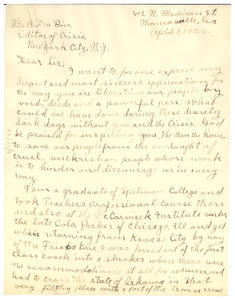 412 N. Madison St.
Thomasville, Ga
April 2, 192
W. E. B. Du Bois
Editor of Crisis
New York City, N.Y.
Dear Sir:
I want to, for one express my
deepest and most sincere appreciation for
the way you are liberating our people by
word, deeds and a powerful pen. What
could we have done during these dreary
dark days without you and the Crisis. God
be praised for inspiring you, The Man the Hour
to save our people from the onslaught of
cruel, unchristian people whose work
is to hinder and discourage us in every
way.
I am a graduate of Spelman College and
took Teachers Professional Course there
and also at the McCormick Institute under
the late Cola Parker of Chicago, Ill. and yet
when returning from Kansas City by way
of the Frisco line, I was forced out of the first
class coach into a smoker where there were
no accommodations at all for women, and
had to cross the State of Arkansas in that
very filthy place with a part of the train crew